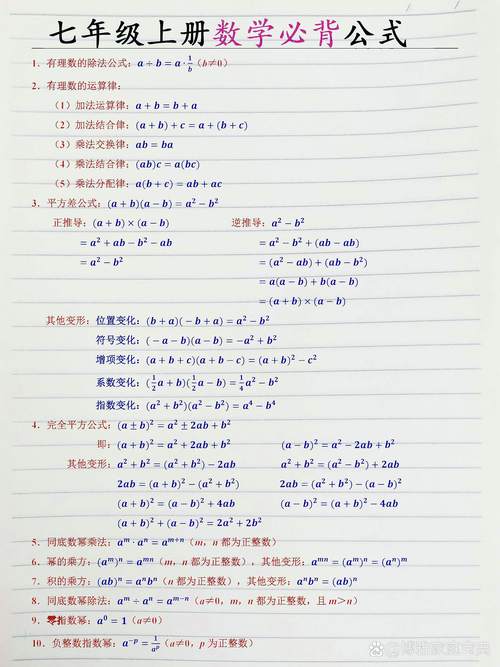 七年级上册数学必背公式
1. 有理数的除法公式：a ÷ b = a · 1/b (b≠0)
2. 有理数的运算律：
（1）加法运算律：a + b = b + a
（2）加法结合律：(a + b) + c = a + (b + c)
（3）乘法交换律：ab = ba
（4）乘法结合律：(ab)c = a(bc)
（5）乘法分配律：a(b + c) = ab + ac
3. 平方差公式：(a + b)(a − b) = a² − b²
正推导：(a + b) × (a − b) 逆推导：a² − b²
= a² + ab − b² − ab = a² − b² + (ab − ab)
= a² − b² = (a² − ab) + (ab − b²)
= a(a − b) + b(a − b)
= (a + b) × (a − b)
其他变形：位置变化：(b + a)(−b + a) = a² − b²
符号变化：(−a − b)(a − b) = −a² + b²
增项变化：(a + b + c)(a + b − c) = (a + b)² − c²
系数变化：(1/2 a + b)(1/2 a − b) = 1/4 a² − b²
指数变化：(a² + b²)(a² − b²) = a⁴ − b⁴
4. 完全平方公式：(a ± b)² = a² ± 2ab + b²
即：(a + b)² = a² + 2ab + b² (a − b)² = a² − 2ab + b²
其他变形：a² + b² = (a² + b²) − 2ab a² + b² = (a² − b²) + 2ab
2ab = (a + b)² − (a² + b²) 2ab = (a² + b²) − (a − b)²
(a + b)² = (a − b)² + 4ab (a − b)² = (a + b)² − 4ab
(a + b)² + (a − b)² = 2a² + 2b²
5. 同底数幂乘法：aᵐ · aⁿ = aᵐ⁺ⁿ（m，n 都为正整数）
6. 幂的乘方：(aᵐ)ⁿ = aᵐⁿ（m，n 都为正整数），其他变形：aᵐⁿ = (aᵐ)ⁿ = (aⁿ)ᵐ
7. 积的乘方：(ab)ⁿ = aⁿbⁿ（n 都为正整数），其他变形：aⁿbⁿ = (ab)ⁿ
8. 同底数幂除法：aᵐ ÷ aⁿ = aᵐ⁻ⁿ（a≠0，m，n 都为正整数，且 m＞n）
9. 零指数幂：a⁰ = 1（a≠0）
10. 负整数指数幂：a⁻ᵖ = 1/aᵖ（a≠0，p 为正整数）